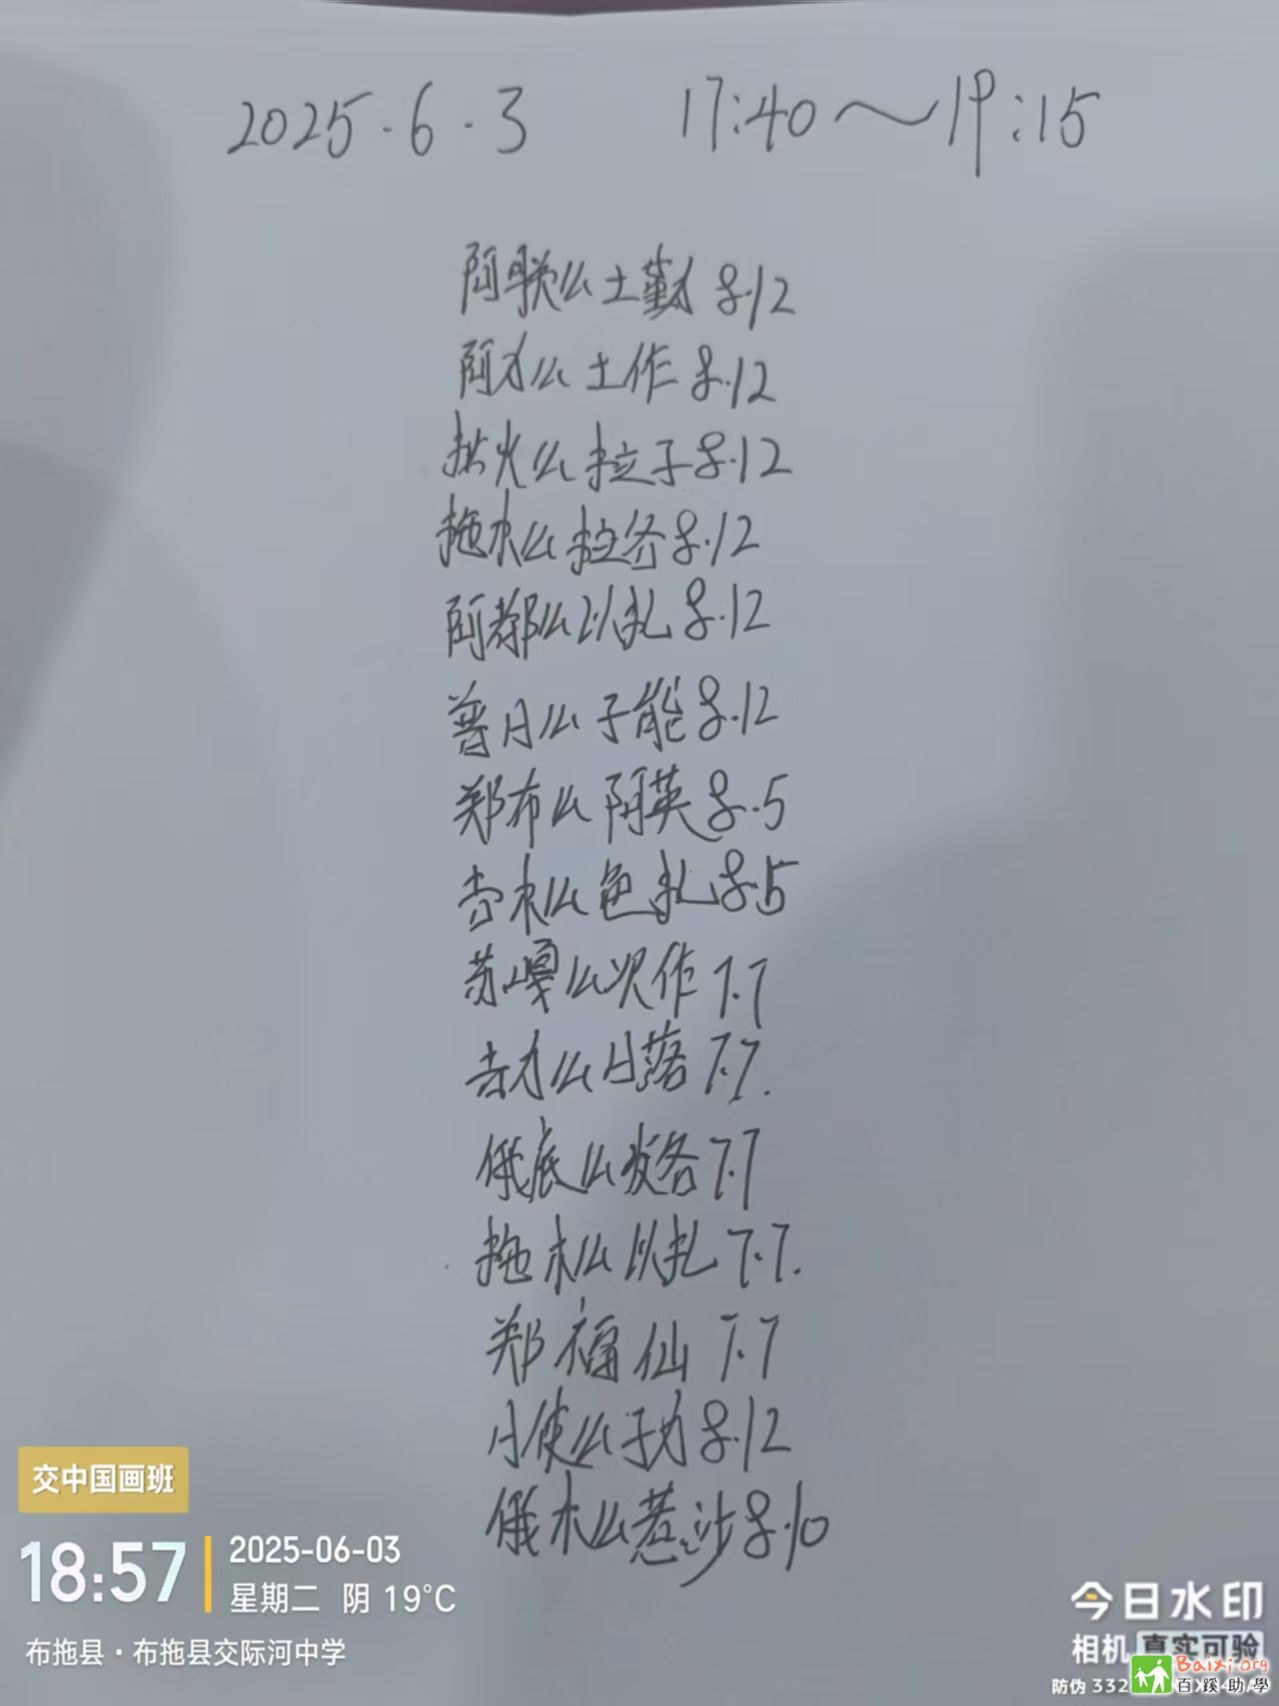 2025.6.3 17:40～19:15
阿联么土勤 8.12
阿力么土作 8.12
扯火么拉子 8.12
拖木么拉各 8.12
阿都么以扎 8.12
普日么子能 8.12
郑布么阿英 8.5
吉木么色扎 8.5
苏嘎么次作 7.7
吉力么日落 7.7.
俄底么发各 7.7
拖木么以扎 7.7.
郑福仙 7.7
日使么子力 8.12
俄木么惹沙 8.10
交中国画班
18:57
2025-06-03
星期二 阴 19°C
布拖县·布拖县交际河中学
今日水印
相机 真实可验
防伪 332
Baixi.org
百蹊助學